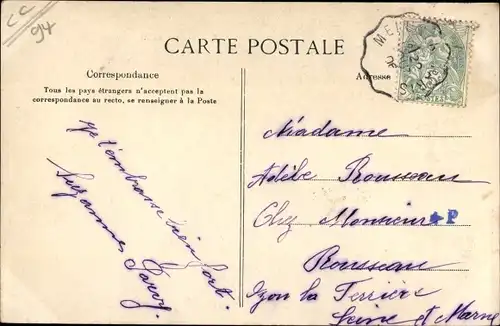 CC
94
CARTE POSTALE
Correspondance
Tous les pays étrangers n'acceptent pas la
correspondance au recto, se renseigner à la Poste
Je t'embrasse bien fort.
Suzanne
Adresse
Madame
Adèle Rousseau
Chez Monsieur P
Rousseau
la Ferrière
Seine et Marne